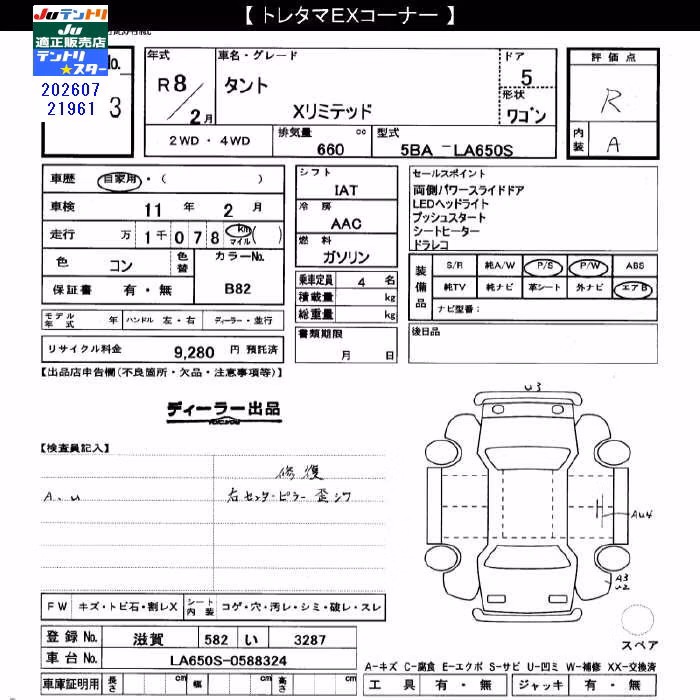 【 トレタマEXコーナー 】
Juテントリ
Ju
適正販売店
テントリ
★スター
No.
202607
21961
3
年式
R 8/2月
車名・グレード
タント
Xリミテッド
ドア
5
形状
ワゴン
評価点
R
内装 A
2WD ・ 4WD
排気量 cc
660
型式
5BA －LA650S
車歴 自家用・( )
車検 11 年 2 月
走行 万 1千 0 7 8 km マイル ( )
色 コン
色替
カラーNo.
B82
保証書 有・無
モデル年式 年 ハンドル 左・右 ディーラー・並行
リサイクル料金 9,280 円 預託済
シフト
IAT
冷房
AAC
燃料
ガソリン
乗車定員 4 名
積載量 kg
総重量 kg
書類期限
月 日
セールスポイント
両側パワースライドドア
LEDヘッドライト
プッシュスタート
シートヒーター
ドラレコ
装備品
S/R 純A/W P/S P/W ABS
純TV 純ナビ 革シート 外ナビ エアB
ナビ型番：
後日品
【出品店申告欄(不良箇所・欠品・注意事項等)】
ディーラー出品
【検査員記入】
A、U
修復
右センターピラー 歪シワ
U3
AU4
A3
U2
スペア
FW キズ・トビ石・割レX
シート内装 コゲ・穴・汚レ・シミ・破レ・スレ
登録No. 滋賀 582 い 3287
車台No. LA650S-0588324
車庫証明用 長さ cm 幅 cm 高さ cm
A-キズ C-腐食 E-エクボ S-サビ U-凹ミ W-補修 XX-交換済
工具 有・無 ジャッキ 有・無